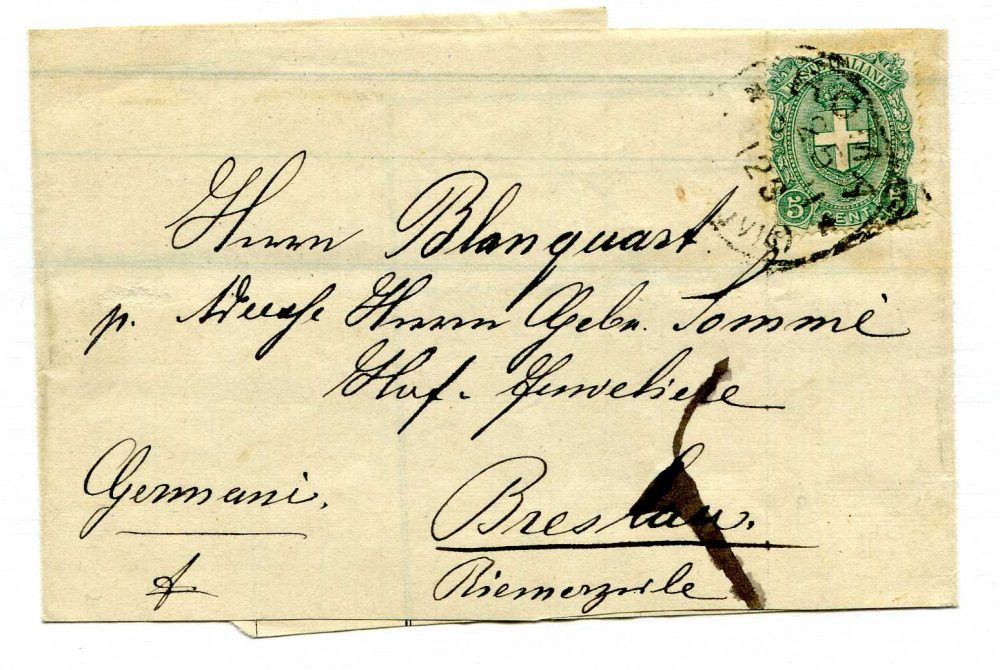 POSTE ITALIANE
5 CENT 5
Herrn Blanquart
p. Adresse Herrn Gebr. Sommé
Hof-Juweliere
Germani.
Breslau.
Riemerzeile